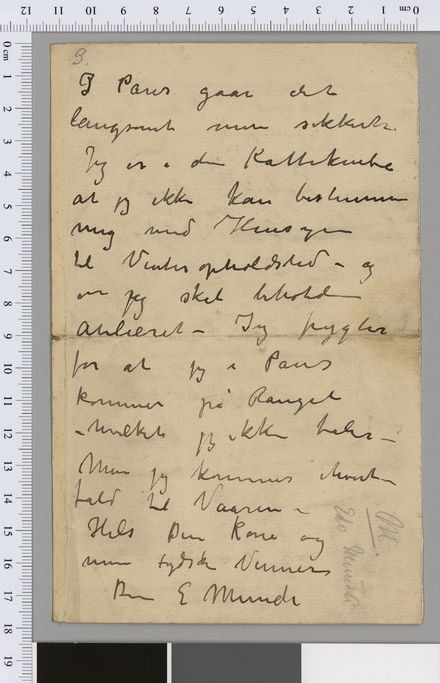 3.
I Paris gaar det
langsomt men sikkert.
Jeg er i den Kattekinbe
at jeg ikke kan bestemme
mig med Hensyn
til Vinteropholdsted – og
om jeg skal beholde
Atelieret – Jeg frygter
for at jeg i Paris
kommer på Ranget
– hvilket jeg ikke taler –
Men jeg kommer ihvert-
fald til Vaaren –
Hils Din Kone og
min tydske Venner
Din E Munch
Edv Munch